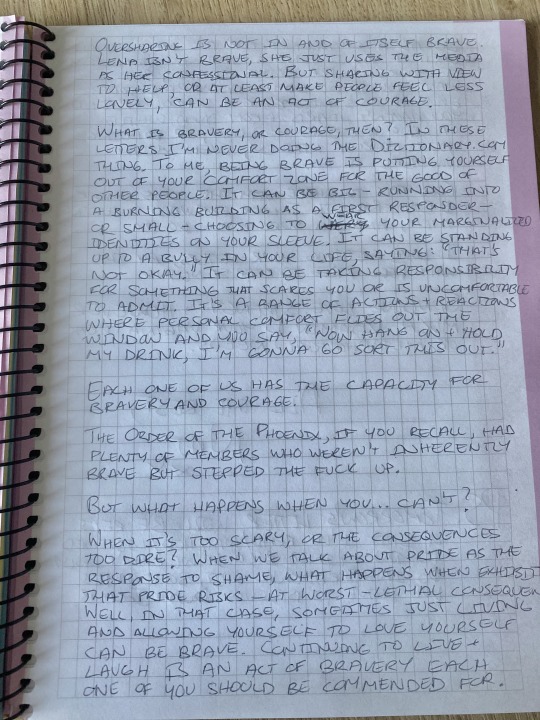 OVERSHARING IS NOT IN AND OF ITSELF BRAVE.
LENA ISN'T BRAVE, SHE JUST USES THE MEDIA
AS HER CONFESSIONAL. BUT SHARING WITH VIEW
TO HELP, OR AT LEAST MAKE PEOPLE FEEL LESS
LONELY, CAN BE AN ACT OF COURAGE.
WHAT IS BRAVERY, OR COURAGE, THEN? IN THESE
LETTERS I'M NEVER DOING THE DICTIONARY.COM
THING. TO ME, BEING BRAVE IS PUTTING YOURSELF
OUT OF YOUR COMFORT ZONE FOR THE GOOD OF
OTHER PEOPLE. IT CAN BE BIG - RUNNING INTO
A BURNING BUILDING AS A FIRST RESPONDER -
OR SMALL - CHOOSING TO WEAR YOUR MARGINALIZED
IDENTITIES ON YOUR SLEEVE. IT CAN BE STANDING
UP TO A BULLY IN YOUR LIFE, SAYING: "THAT'S
NOT OKAY." IT CAN BE TAKING RESPONSIBILITY
FOR SOMETHING THAT SCARES YOU OR IS UNCOMFORTABLE
TO ADMIT. IT'S A RANGE OF ACTIONS + REACTIONS
WHERE PERSONAL COMFORT FLIES OUT THE
WINDOW AND YOU SAY, "NOW HANG ON + HOLD
MY DRINK, I'M GONNA GO SORT THIS OUT."
EACH ONE OF US HAS THE CAPACITY FOR
BRAVERY AND COURAGE.
THE ORDER OF THE PHOENIX, IF YOU RECALL, HAD
PLENTY OF MEMBERS WHO WEREN'T INHERENTLY
BRAVE BUT STEPPED THE FUCK UP.
BUT WHAT HAPPENS WHEN YOU... CAN'T?
WHEN IT'S TOO SCARY, OR THE CONSEQUENCES
TOO DIRE? WHEN WE TALK ABOUT PRIDE AS THE
RESPONSE TO SHAME, WHAT HAPPENS WHEN
THAT PRIDE RISKS - AT WORST - LETHAL
WELL, IN THAT CASE, SOMETIMES JUST LIVING
AND ALLOWING YOURSELF TO LOVE YOURSELF
CAN BE BRAVE. CONTINUING TO LIVE +
LAUGH IS AN ACT OF BRAVERY EACH
ONE OF YOU SHOULD BE COMMENDED FOR.